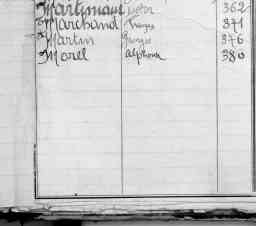 Martineau Victor 362
Marchand Georges 371
Martin Georges 376
Morel Alphonse 380